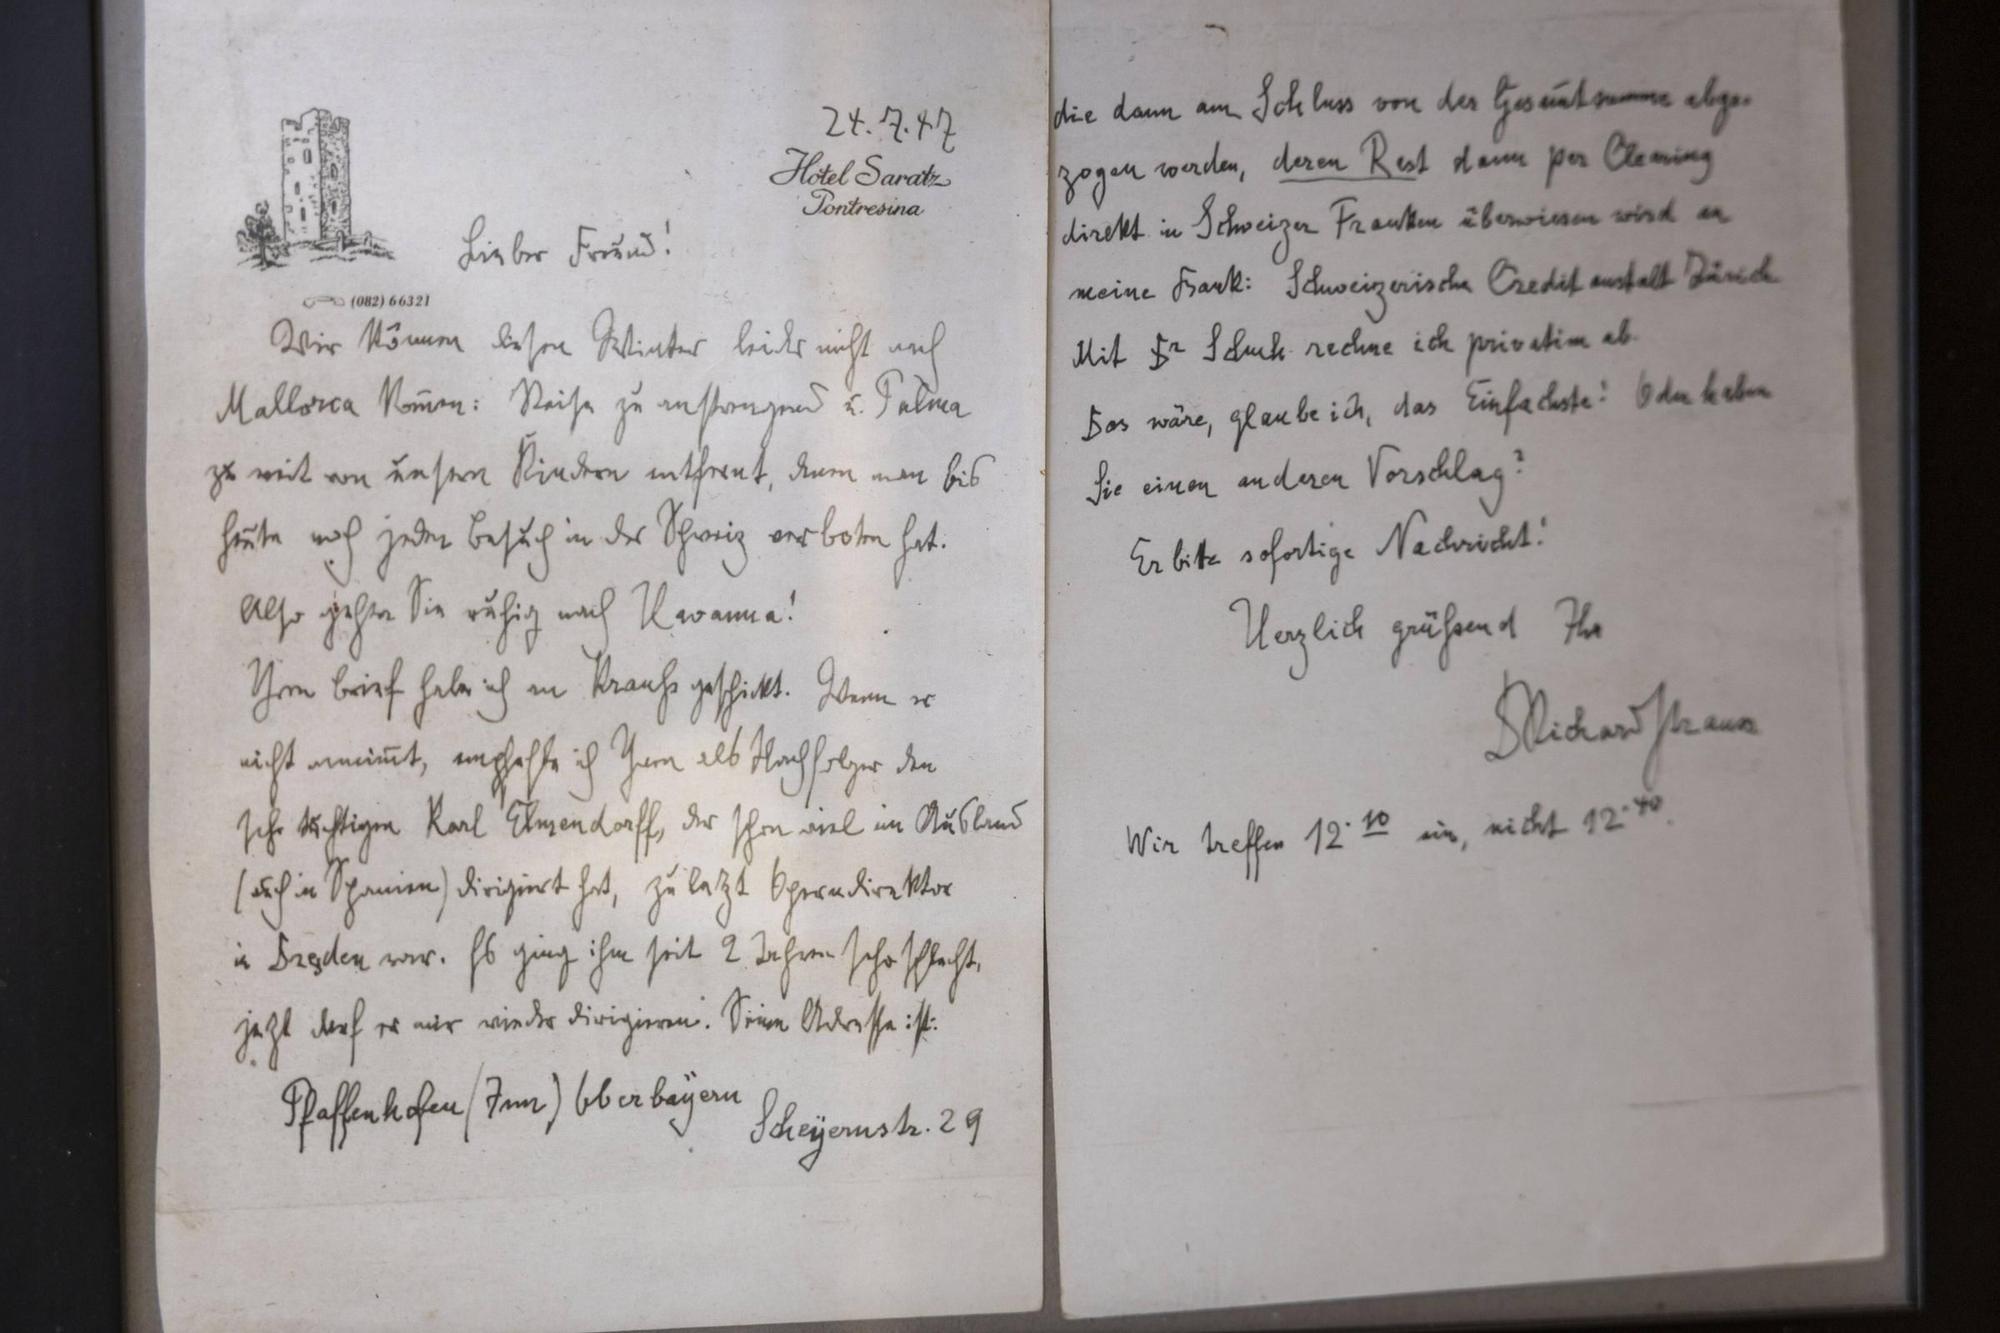 24.7.47
Hotel Saratz
Pontresina
Lieber Freund!
(082) 66321
Wir können diesen Winter leider nicht nach
Mallorca kom̄en: Reise zu anstrengend u. Palma
zu weit von unsern Kindern entfernt, denen man bis
heute noch jeden Besuch in der Schweiz verboten hat.
Also gehen Sie ruhig nach Havanna!
Ihren Brief habe ich an Krauss geschickt. Wenn er
nicht annim̄t, empfehle ich Ihnen als Nachfolger den
sehr tüchtigen Karl Elmendorff, der schon viel im Ausland
(auch in Spanien) dirigiert hat, zuletzt Operndirektor
in Dresden war. Es ging ihm seit 2 Jahren sehr schlecht,
jetzt darf er nur wieder dirigieren. Seine Adresse ist:
Pfaffenhofen (Inn) Oberbayern
Scheyernstr. 29
die dann am Schluss von der Gesamtsumme abge-
zogen werden, deren Rest dann per Clearing
direkt in Schweizer Franken überwiesen wird an
meine Bank: Schweizerische Creditanstalt Zürich
Mit Dr Schuh rechne ich privatim ab.
Das wäre, glaube ich, das Einfachste! Oder haben
Sie einen anderen Vorschlag?
Erbitte sofortige Nachricht!
Herzlich grüßend Ihr
DRichard Strauss
Wir treffen 12.10 ein, nicht 12.40.